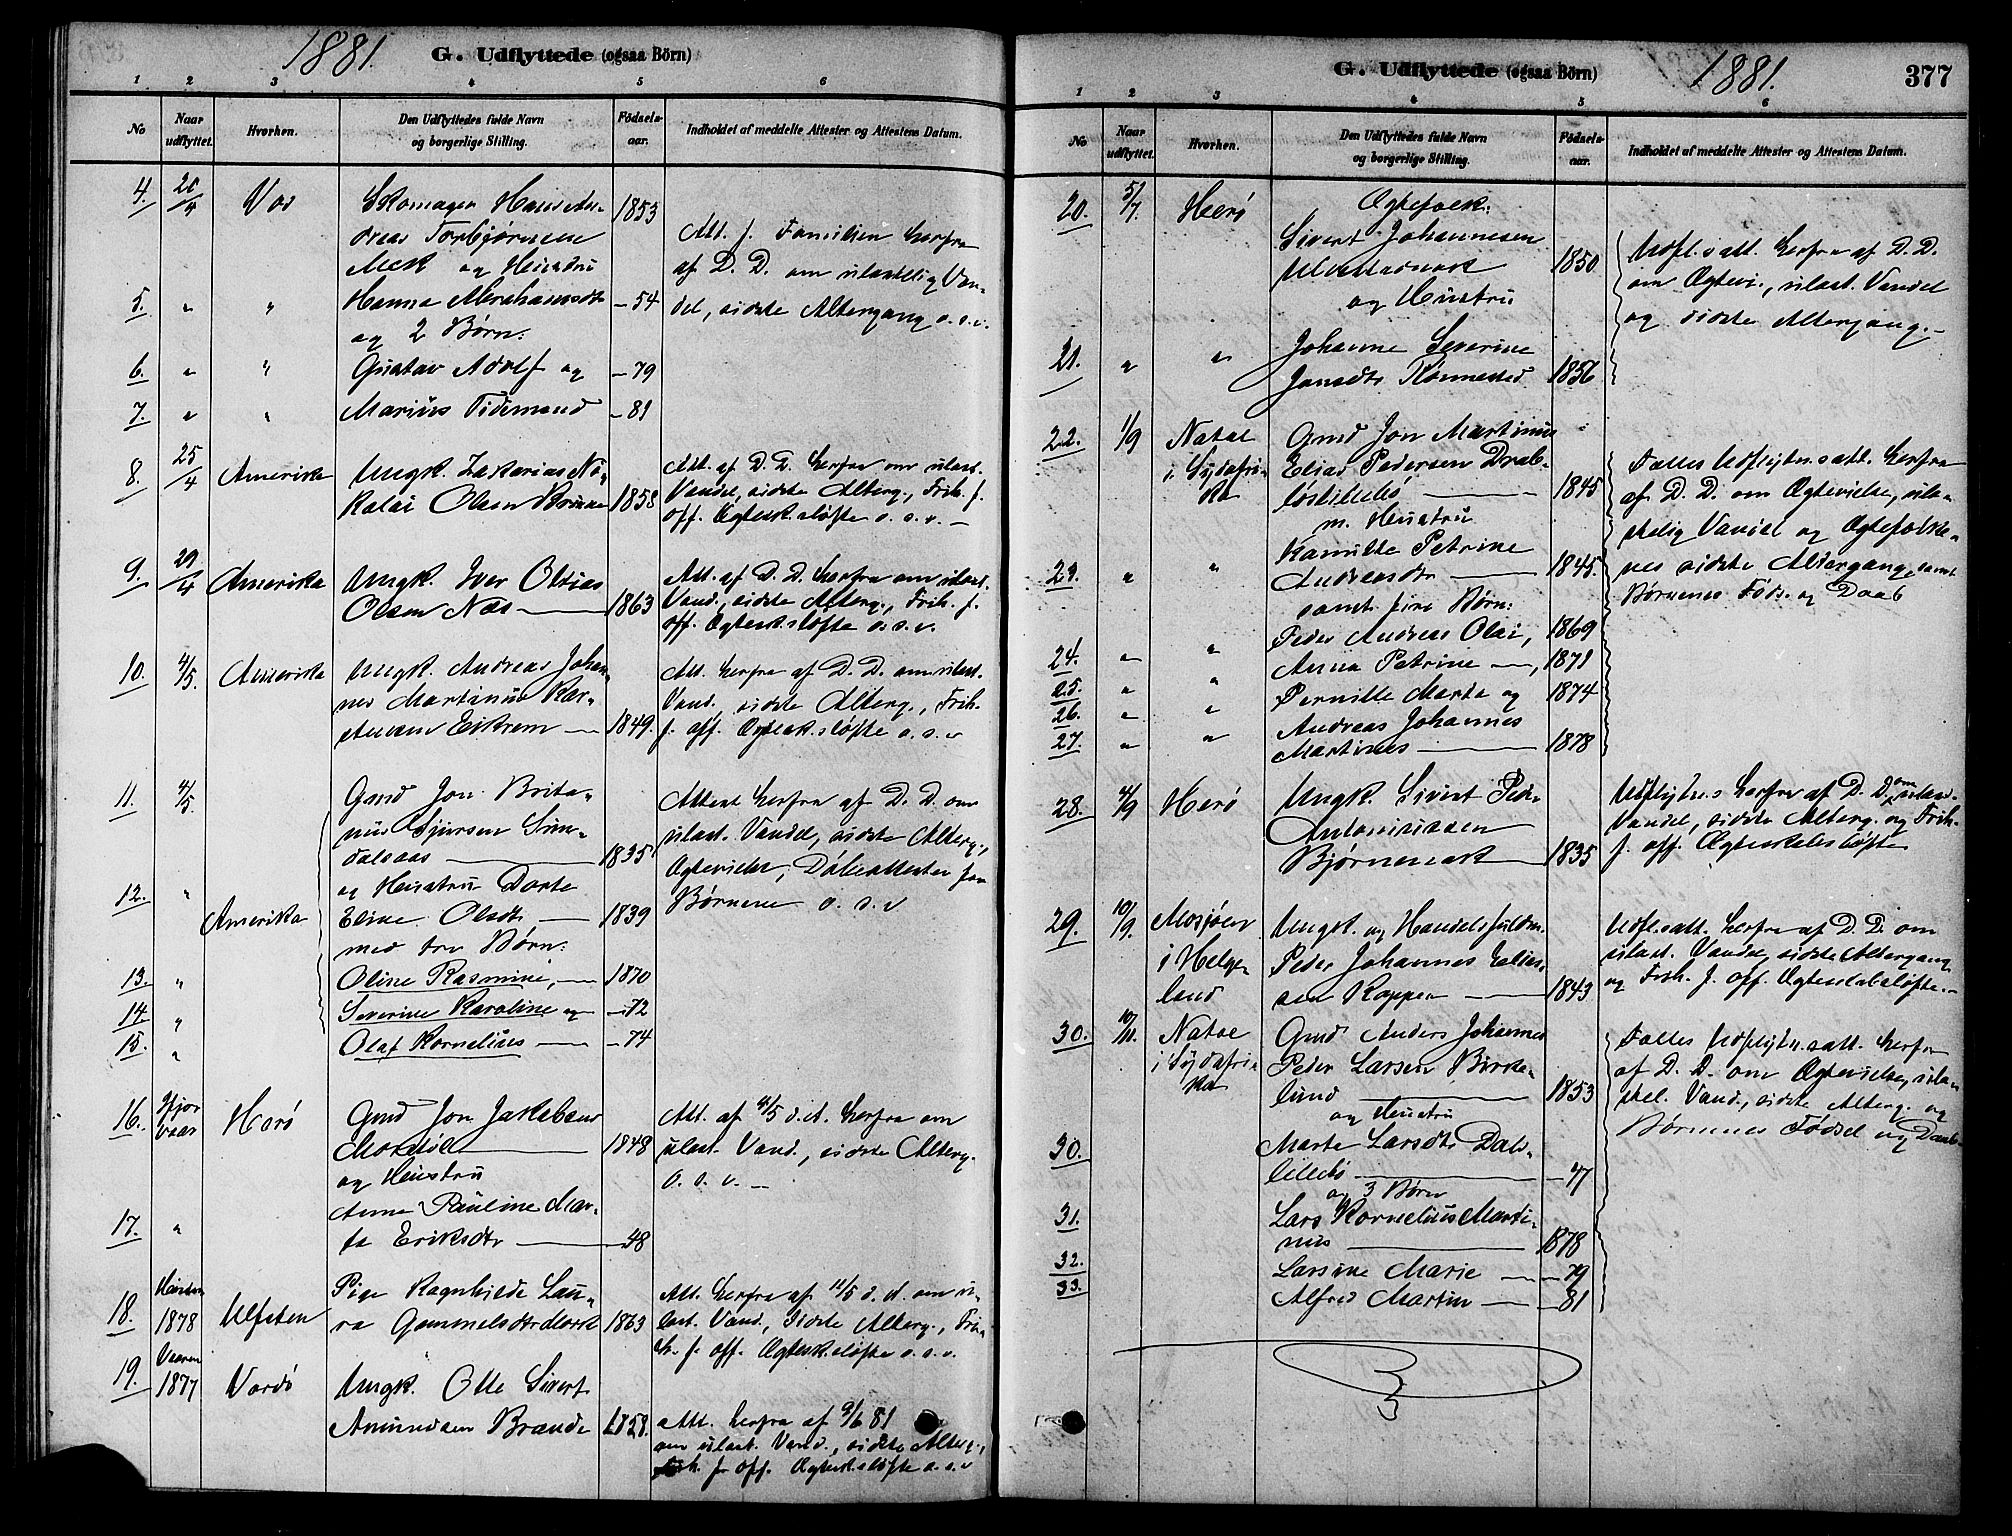 1881.
G. Udflyttede (ogsaa Börn)
1 2 3 4 5 6
No
Naar udflyttet.
Hvorhen.
Den Udflyttedes fulde Navn og borgerlige Stilling.
Födsels-aar.
Indholdet af meddelte Attester og Attestens Datum.
4. 20/4 Skomager Hans An- 1853
dreas Torbjørnsen
og Hustru
Att. f. Familien herfra
af D. D. om ulastelig Van-
del, sidste Altergang o. s. v.
5. " " Hanna Abrahamsdtr - 54
og 2 Børn:
6. " " Gustav Adolf og - 79
7. " " Marius Tidemand - 81
8. 25/4 Amerika Ungk. Zakarias Ni-
kolai Olsen 1858
Att. af D. D. herfra om ulast.
Vandel, sidste Alterg., Frih. f.
off. Ægtesk.sløfte o. s. v. -
9. 29/4 Amerika Ungk. Iver Olsen Næs 1863
Att. af D. D. herfra om ulast.
Vand., sidste Alterg., Frih. f.
off. Ægtesk.sløfte o. s. v.
10. 4/5. Amerika Ungk. Andreas Johan-
nes Martinus Kar-
stensen Eikrem 1849.
Att. herfra af D. D. om ulast.
Vand., sidste Alterg., Frih.
f. off. Ægtesk.sløfte o. s. v
11. 4/5. Gmd Jon Brita-
nus Sjursen Sun-
dalsaas 1835
Attest herfra af D. D. om
ulast. Vandel, sidste Alterg.,
Ægtevielse, Døbeattester for
Børnene o. s. v
12. " Amerika og Hustru Dorte
Eline Olsdtr 1839
med tre Børn:
13. " Oline Rasmine, 1870
14. " Severine Karoline og - 72
15. " Olaf Kornelius - 74
16. Ifjor vaar Herö Gmd Jon Jakobsen
1848
og Hustru
Att. af 4/5 d. A. herfra om
ulast. Vand., sidste Alterg.
o. s. v. -
17. " Anne Pauline Mar-
ta Eriksdtr - 48
18. Høsten 1878 Ulfsten Pige Ragnhilde Lau-
ra 1863
Att. herfra af 11/5 d. A. om u-
last. Vand., sidste Alterg., Fri-
h. f. off. Ægtesk.sløfte o. s. v.
19. Vaaren 1877 Vardö Ungk. Otte Sivert
Amundsen Brande 1858.
Att. herfra af 9/6 81
om ulast. Vand., sidste Alterg.,
Frih. f. off. Ægtesk.sløfte o. s. v
G. Udflyttede (ogsaa Börn)
1881.
377
1 2 3 4 5 6
No
Naar udflyttet.
Hvorhen.
Den Udflyttedes fulde Navn og borgerlige Stilling.
Födsels-aar.
Indholdet af meddelte Attester og Attestens Datum.
20. 5/7. Herö Ægtefolk:
Sivert Johannesen
1850
og Hustru
Udfl.satt. herfra af D. D.
om Ægtevi., ulast. Vandel
og sidste Altergang. -
21. " " Johanne Severine
Jonsdtr 1856
22. 1/9 Natal
i Sydafri-
ka
Gmd Jon Martinus
Elias Pedersen Drab-
løskillebö 1845
m. Hustru
Fælles Udflytn.satt. herfra
af D. D. om Ægtevielse, ula-
stelig Vandel og Ægtefolke-
nes sidste Altergang, samt
Børnenes Føds. og Daab
23. " " Kamilla Petrine
Andreasdtr 1845.
samt fire Børn:
24. " " Peder Andreas Olai, 1869
25. " " Anna Petrine, 1871
26. " " Pernille Marta og 1874
27. " " Andreas Johannes
Martinus 1878
28. 4/9 Herö Ungk. Sivert Peder
Antoniussen
Bjørnenak 1835
Udflytn.s herfra af D. D. om ulast.
Vandel, sidste Alterg. og Frih.
f. off. Ægteskabsløfte
29. 10/9. Mosjöen
i Helge-
land
Ungk. og Handelsfuldm.
Peder Johannes Elias-
sen Koppen 1843
Udfl.satt. herfra af D. D. om
ulast. Vandel, sidste Altergang
og Frih. f. off. Ægteskabsløfte. -
30. 10/11. Natal
i Sydafri-
ka
Gmd Anders Johannes
Peder Larsen Birke-
lund 1853
og Hustru
Fælles Udflytn.satt. herfra
af D. D. om Ægtevielse, ula-
stel. Vand., sidste Alterg. og
Børnenes Fødsel og Daab
30. Marte Larsdtr
- 47
og 3 Børn
31. Lars Kornelius Marti-
nus 1878
32. Larsine Marie - 79
33. Alfred Martin - 81